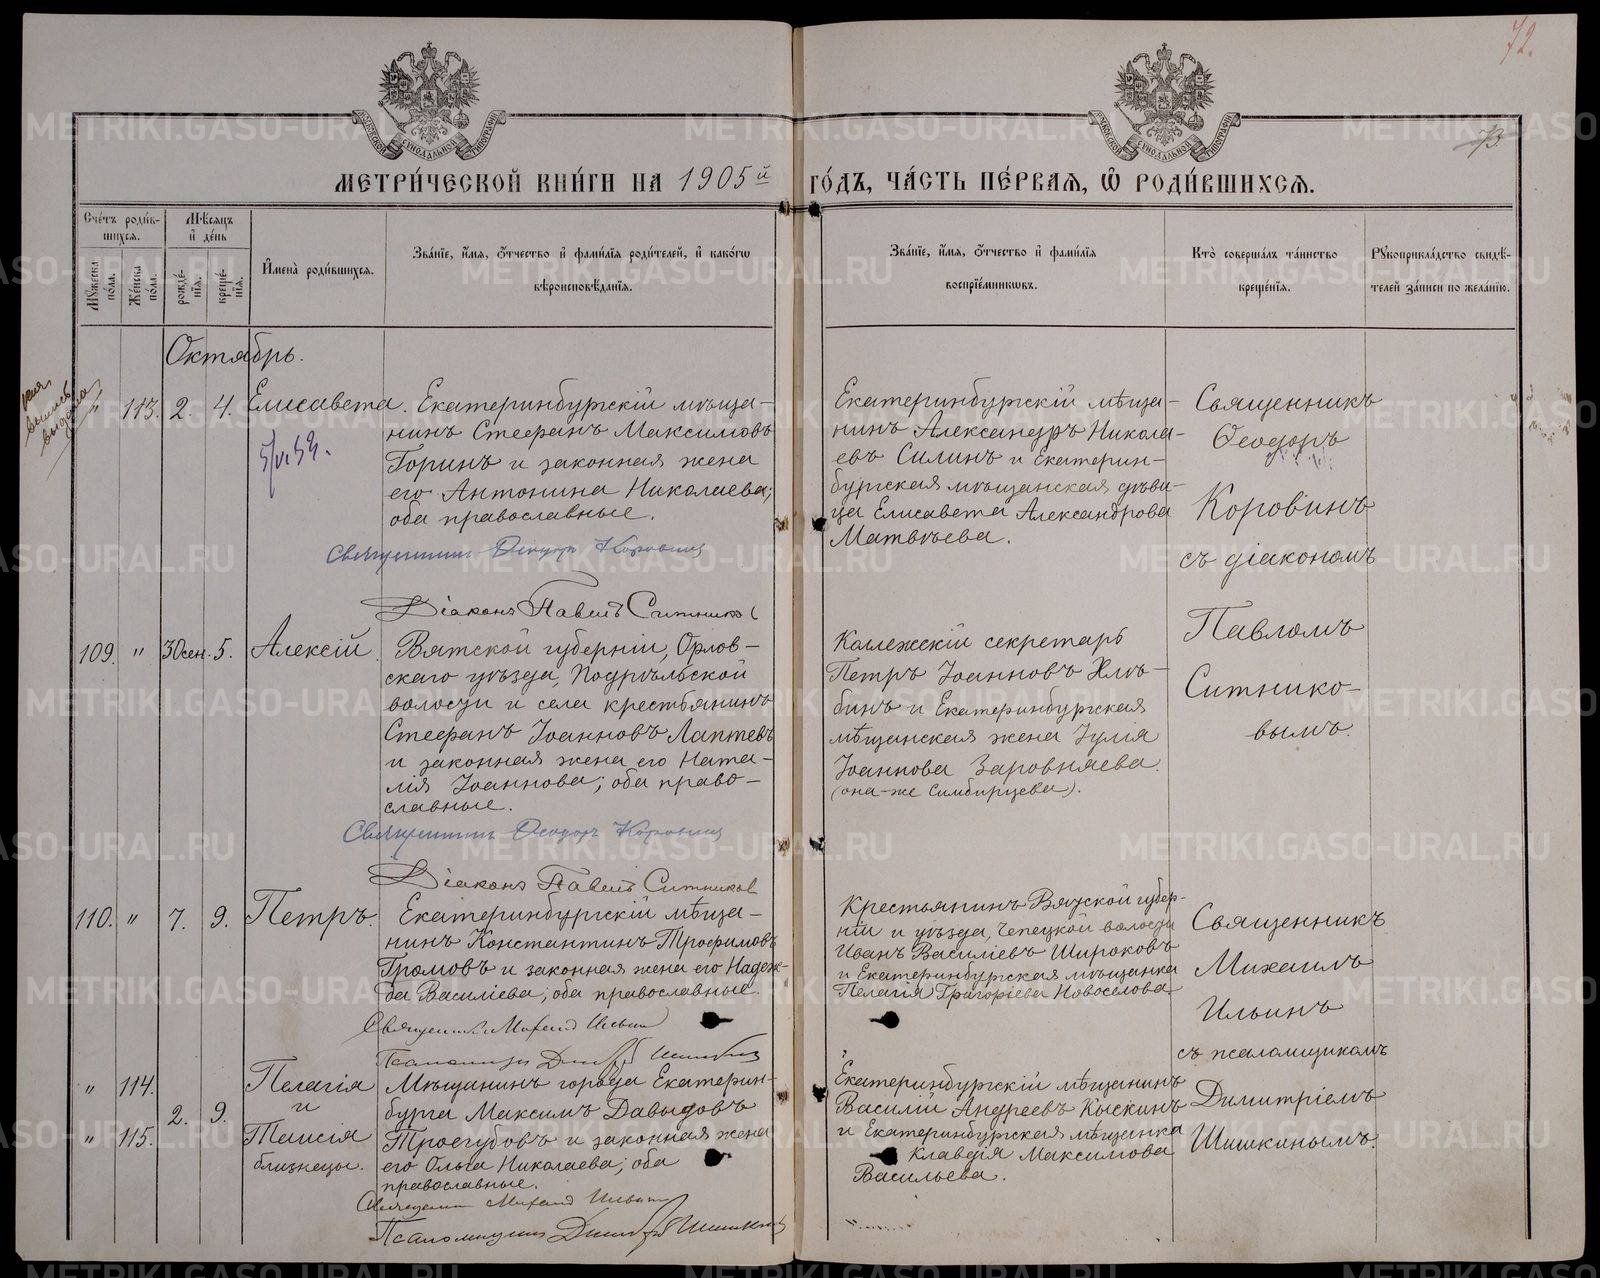 72.
73
МЕТРИ́ЧЕСКОЙ КНИ́ГИ НА 1905й ГО́ДЪ, ЧА́СТЬ ПЕ́РВАЯ, Ѿ РОДИ́ВШИХСЯ.
Сче́тъ роди́в-
шихся.
Мужеска по́ла.
Же́нска по́ла.
Мѣсяцъ
и де́нь
рожде́-
нія.
креще́-
нія.
Имена̀ роди́вшихся.
Зва́ніе, и́мя, о́тчество и фами́лія роди́телей, и како́гѡ
вѣроисповѣ́данія.
Зва́ніе, и́мя, о́тчество и фами́лія
воспріе́мникѡвъ.
Кто̀ соверша́лъ та́инство
креще́нія.
Рукоприкла́дство свидѣ́-
телей за́писи по жела́нію.
Октябрь.
" 113. 2. 4. Елисавета.
5/VI 54.
Екатеринбургскій мѣща-
нинъ Стефанъ Максимовъ
Горинъ и законная жена
его Антонина Николаева;
оба православные.
Священникъ Ѳеодоръ Коровинъ
Діаконъ Павелъ Ситников
Екатеринбургскій мѣща-
нинъ Александръ Никола-
евъ Силинъ и Екатерин-
бургская мѣщанская дѣви-
ца Елисавета Александрова
Матвѣева.
Священникъ
Ѳеодоръ
Коровинъ
съ діакономъ
Павломъ
Ситнико-
вымъ.
109. " 30 сен. 5. Алексій.
Вятской губерніи, Орлов-
скаго уѣзда, Подрѣльской
волости и села крестьянинъ
Стефанъ Іоанновъ Лаптевъ
и законная жена его Ната-
лія Іоаннова; оба право-
славные.
Священникъ Ѳеодоръ Коровинъ
Діаконъ Павелъ Ситников
Коллежскій секретарь
Петръ Іоанновъ Хлѣ-
бинъ и Екатеринбургская
мѣщанская жена Іулія
Іоаннова Заровняева
(она-же Симбирцева).
110. " 7. 9. Петръ.
Екатеринбургскій мѣща-
нинъ Константинъ Трофимовъ
Громовъ и законная жена его Надеж-
да Василіева; оба православные.
Священникъ Михаил Ильин
Псаломщикъ Дмитрій Шишкин
Крестьянинъ Вятской губер-
ніи и уѣзда, Чепецкой волости
Иванъ Василіевъ Широковъ
и Екатеринбургская мѣщанка
Пелагія Григоріева Новоселова
Священникъ
Михаилъ
Ильинъ
съ псаломщикомъ
Димитріемъ
Шишкинымъ.
" 114.
" 115.
2. 9.
Пелагія
и
Таисія
близнецы.
Мѣщанинъ города Екатерин-
бурга Максимъ Давыдовъ
Троегубовъ и законная жена
его Ольга Николаева; оба
православные.
Священник Михаил Ильин
Псаломщикъ Дмитрій Шишкин
Екатеринбургскій мѣщанинъ
Василій Андреевъ Кыскинъ
и Екатеринбургская мѣщанка
Клавдія Максимова
Васильева.
METRIKI.GASO-URAL.RU